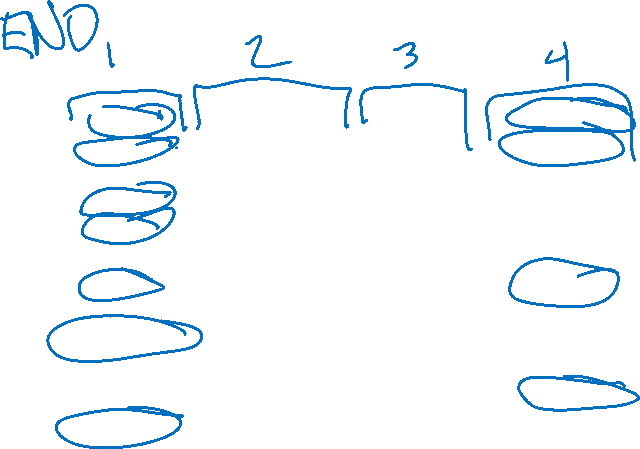 END
1 2 3 4